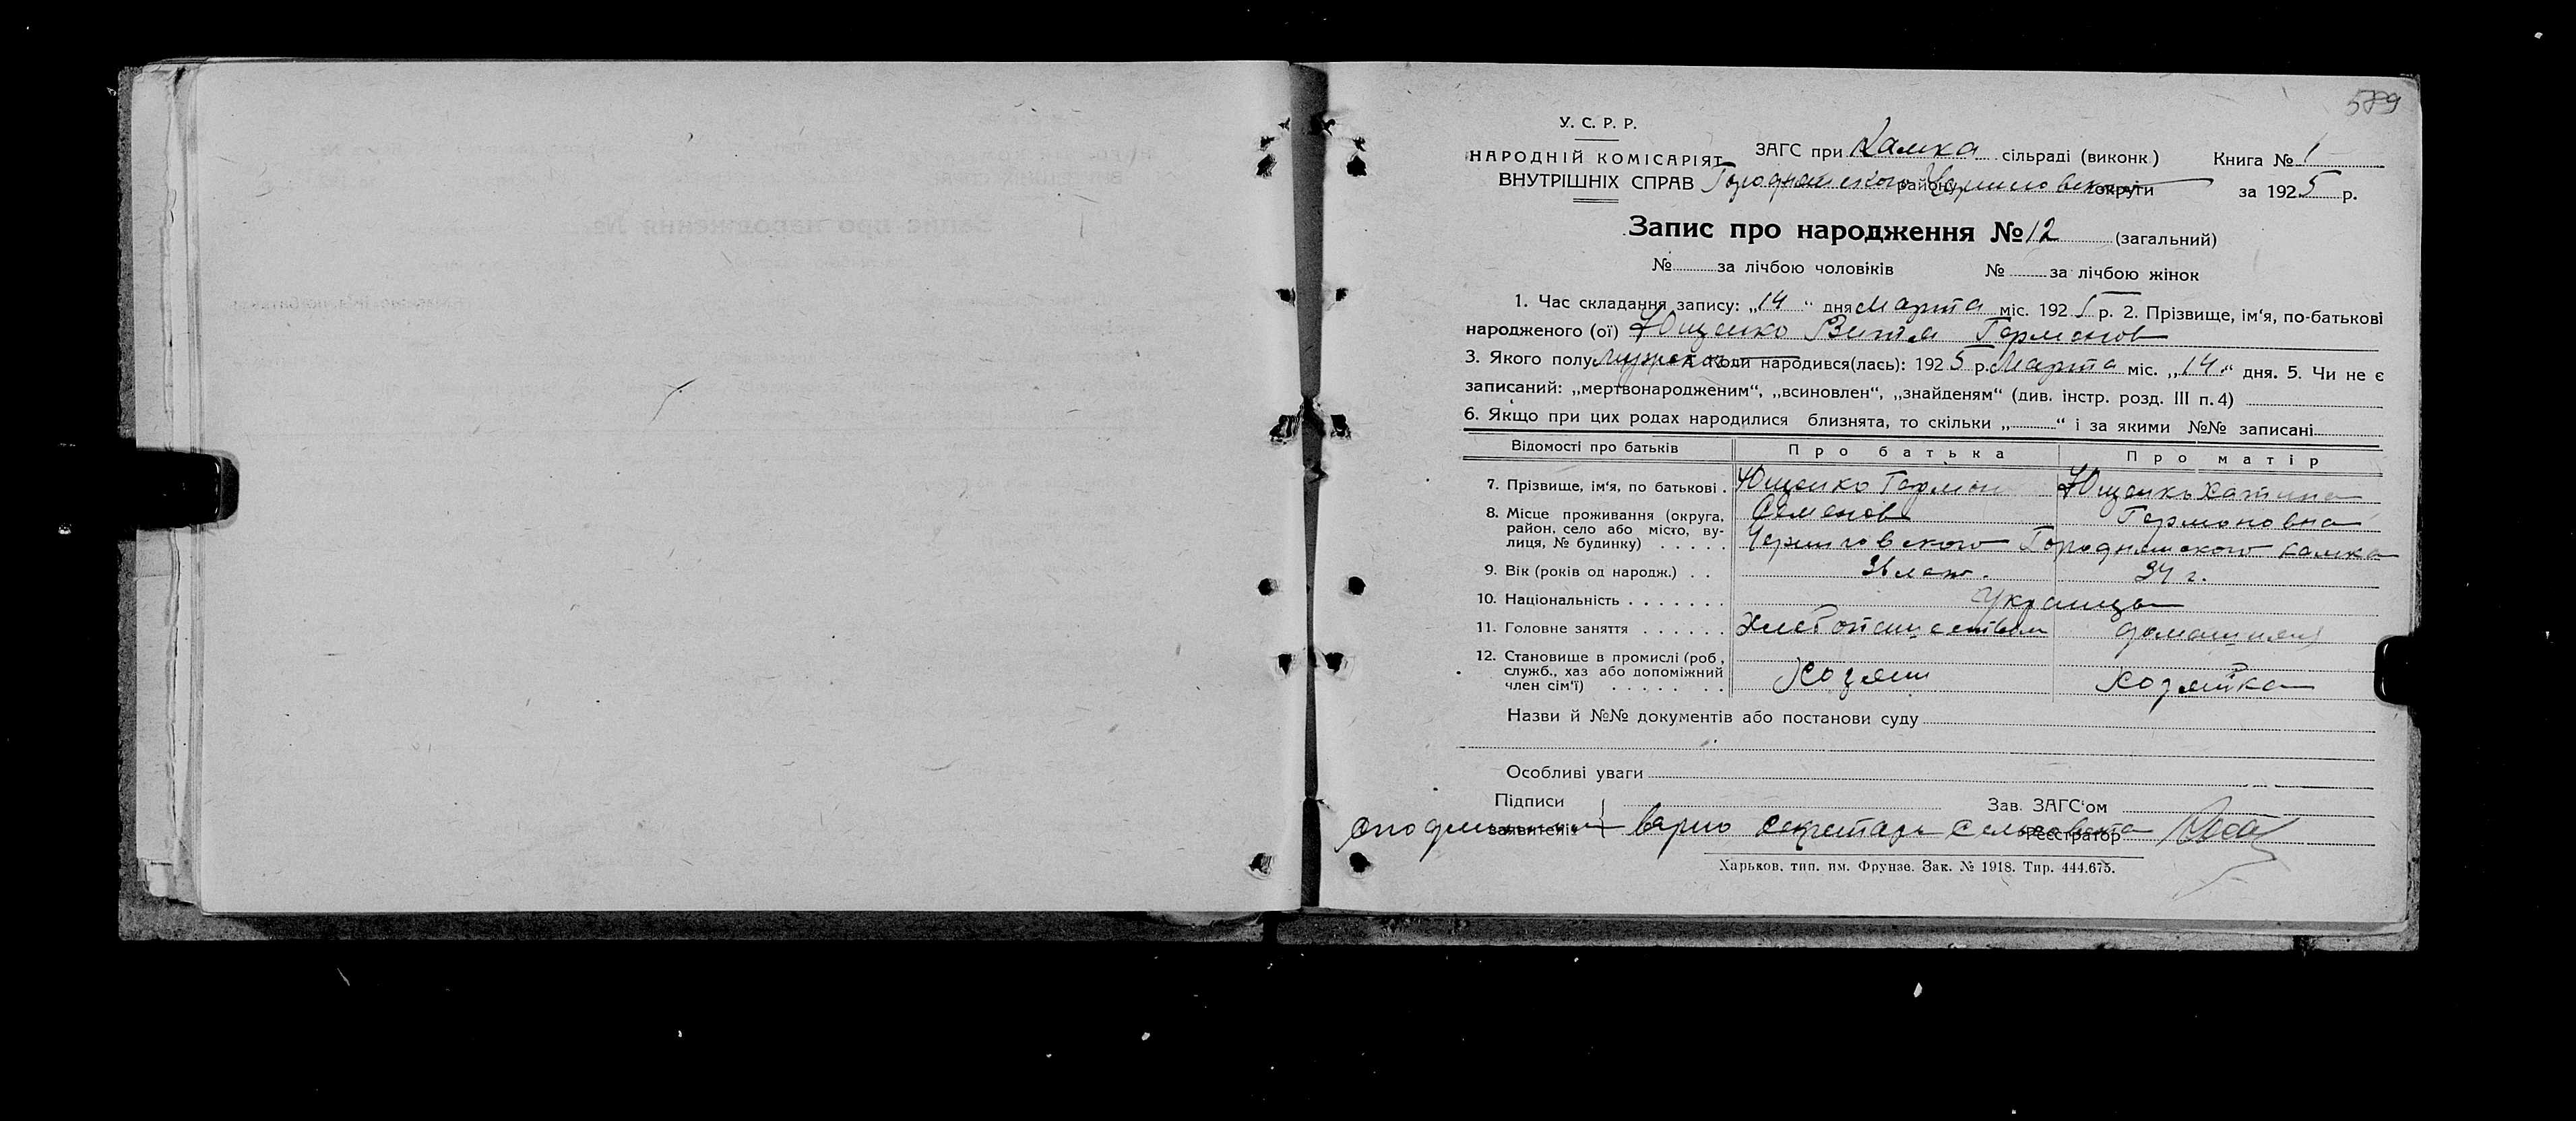 589
У. С. Р. Р.
НАРОДНІЙ КОМІСАРІЯТ
ВНУТРІШНІХ СПРАВ
ЗАГС при Хамка сільраді (виконк)
Городнянского району Черниговской округи
Книга № 1
за 1925 р.
Запис про народження № 12 (загальний)
№ за лічбою чоловіків № за лічбою жінок
1. Час складання запису: „14“ дня Марта міс. 1925 р. 2. Прізвище, ім‘я, по-батькові
народженого (ої) Ющенко Витя Германов
3. Якого полу мужск. Коли народився(лась): 1925 р. Марта міс. „14“ дня. 5. Чи не є
записаний: „мертвонародженим“, „всиновлен“, „знайденям“ (див. інстр. розд. III п. 4)
6. Якщо при цих родах народилися близнята, то скільки „ “ і за якими №№ записані
Відомості про батьків Про батька Про матір
7. Прізвище, ім‘я, по батькові . Ющенко Герман Ющенко
Семенов Германовна
8. Місце проживання (округа,
район, село або місто, ву-
лиця, № будинку) . . . . . Черниговского Городнянского хамка
9. Вік (років од народж.) . . 36 лет. 34 г.
10. Національність . . . . . . . Украинцы
11. Головне заняття . . . . . . Хлебопашеством домашняя
12. Становище в промислі (роб,
служб., хаз або допоміжний
член сім‘ї) . . . . . . . Хозяин Хозяйка
Назви й №№ документів або постанови суду
Особливі уваги
Підписи
заявителів
Зав. ЗАГС‘ом
верно секретарь сельсовета
Реєстратор
Харьков, тип. им. Фрунзе. Зак. № 1918. Тир. 444.675.